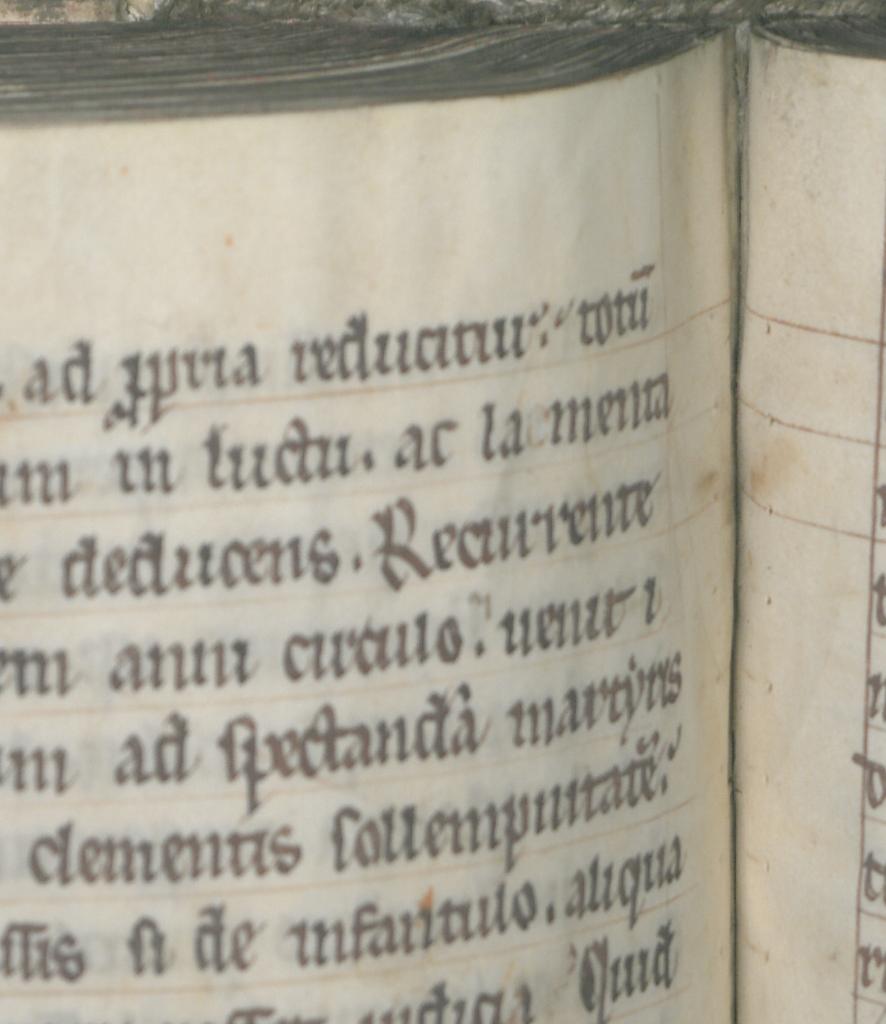 ad ꝓpria reducitur: totū
in luctu. ac lamenta
deducens. Recurrente
anni circulo. uenit i
ad spectandā martyris
clementis sollempnitatē.
si de infantulo. aliqua
Quid